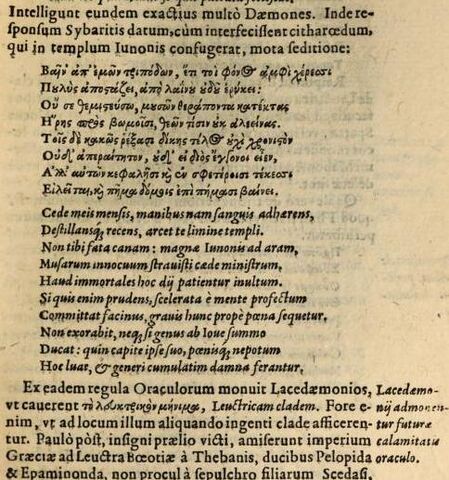 Intelligunt eundem exactius multò Dæmones. Inde re-
sponsum Sybaritis datum, cùm interfecissent citharœdum,
qui in templum Iunonis confugerat, mota seditione:
Βαῖν' ἀπ' ἐμῶν τριπόδων, ἔτι τοι φόνος ἀμφὶ χέρεσσι
Πυλὺς ἀποστάζει, ἀπὸ λαίνου οὐδοῦ ἐρύκει:
Οὔ σε θεμιστεύσω, μουσῶν θεράποντα κατέκτας
Ἥρης πρὸς βωμοῖσι, θεῶν τίσιν οὐκ ἀλεείνας.
Τοῖς δὲ κακῶς ῥέξασι δίκης τέλος οὐχὶ χρονιστὸν
Οὐδὲ παραιτητον, οὐδ' εἰ διὸς ἔγγονοι εἶεν,
Ἀλλ' αὐτῶν κεφαλῇσι καὶ ἐν σφετέροισι τέκεσσι
Εἰλεῖται, καὶ πῆμα δόμοις ἐπὶ πήμασι βαίνει.
Cede meis mensis, manibus nam sanguis adhærens,
Destillansq; recens, arcet te limine templi.
Non tibi fata canam: magnæ Iunonis ad aram,
Musarum innocuum strauisti cæde ministrum,
Haud immortales hoc dij patientur inultum.
Si quis enim prudens, scelerata è mente profectum
Committat facinus, grauis hunc propè pœna sequetur.
Non exorabit, neq; si genus ab Ioue summo
Ducat: quin capite ipse suo, pœnisq; nepotum
Hoc luat, & generi cumulatim damna ferantur.
Ex eadem regula Oraculorum monuit Lacedæmonios,
vt cauerent τὸ λουκτρικὸν μήνιμα, Leuctricam cladem. Fore e-
nim, vt ad locum illum aliquando ingenti clade afficeren-
tur. Paulò pòst, insigni prælio victi, amiserunt imperium
Græciæ ad Leuctra Bœotiæ à Thebanis, ducibus Pelopida
& Epaminonda, non procul à sepulchro filiarum Scedasi,
Lacedæmo-
nij admonen-
tur futuræ
calamitatis
oraculo.